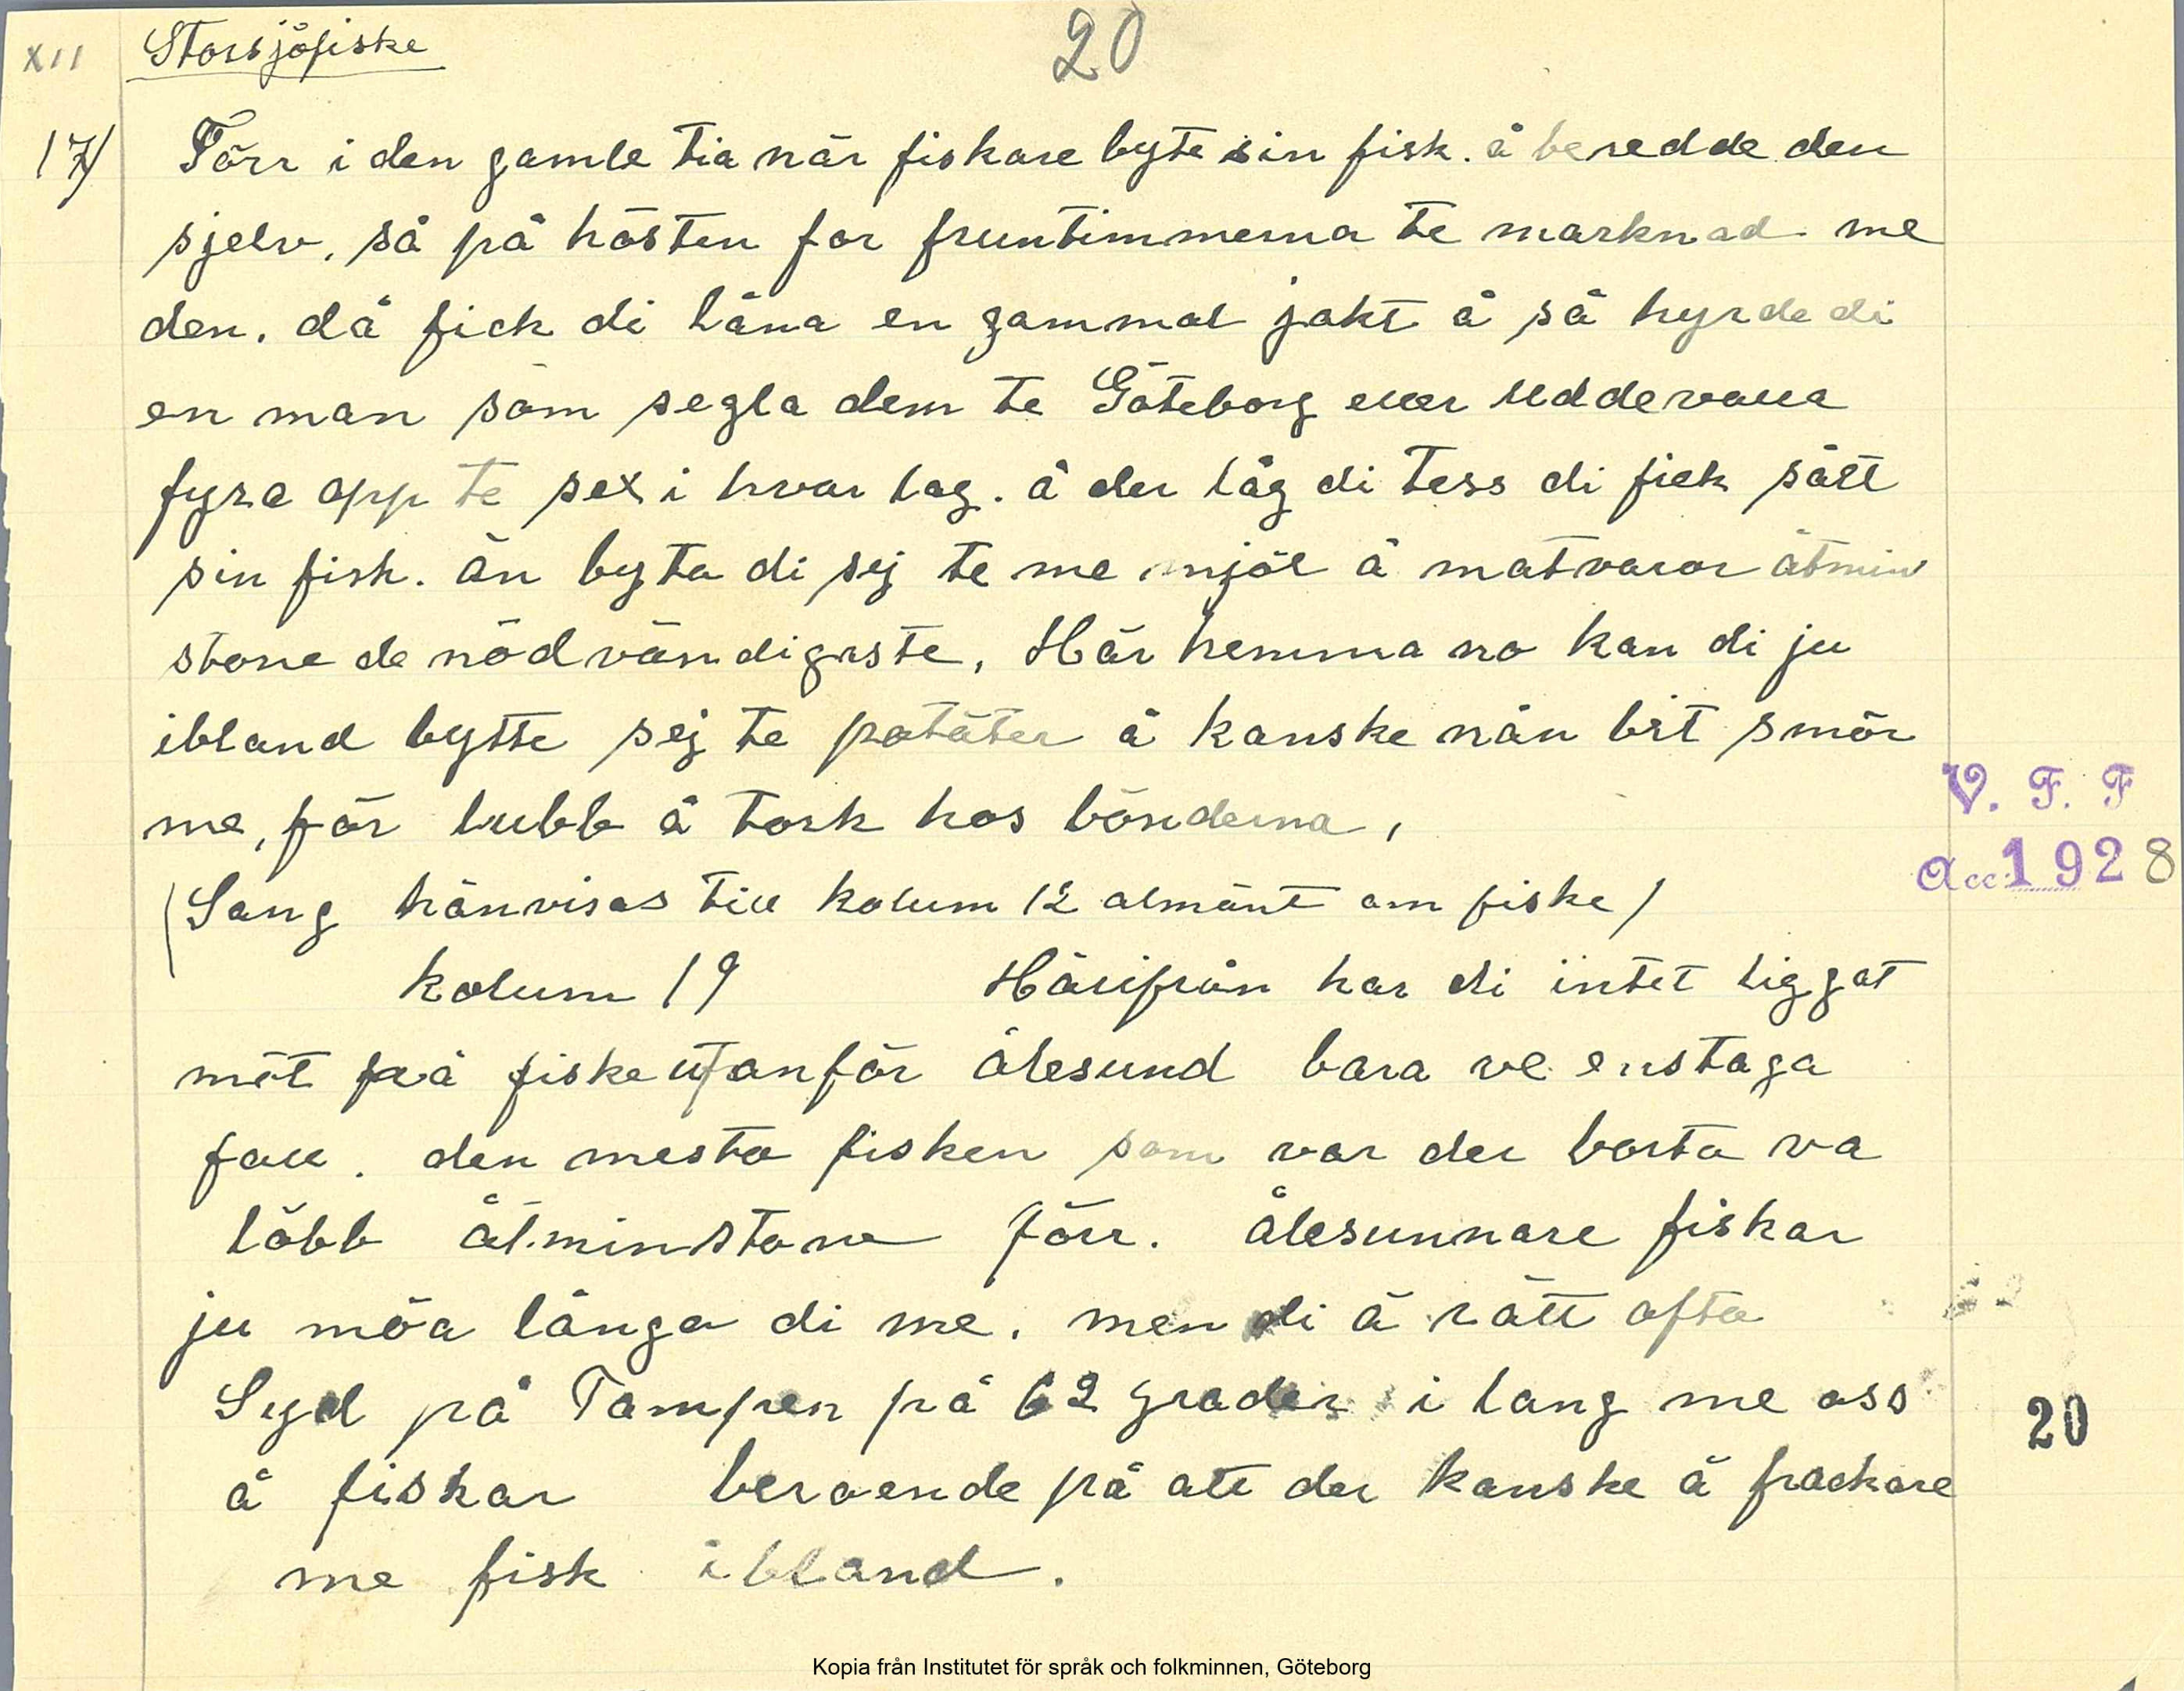 XII Storsjöfiske 20
17) Förr i den gamle tia när fiskare byte sin fisk. å beredde den
sjelv, så på hösten for fruntimmerna te marknad me
den. då fick di låna en gammal jakt å så hyrde di
en man som segla dem te Göteborg eller Uddevalla
fyra opp te sex i hvar lag. å der låg di tess di fick sålt
sin fisk. än byta di sej te me mjöl å matvaror åtmin
stone de nödvändigaste, Här hemma no kan di ju
ibland bytte sej te potäter å kanske nån bit smör
me, för lubb å tork hos bönderna,
V. F. F
Acc: 1928
(Sang hänvisas till kolum 12 almänt om fiske)
kolum 19 Härifrån har di intet liggat
möt på fiske utanför ålesund bara ve enstaga
fall. den mesta fisken som var der borta va
löbb åtminstone förr. ålesunnare fiskar
ju möa långa di me. men di ä rätt ofta
Syd på Tampen på 62 grader i lang me oss
å fiskar beroende på att der kanske ä frackare
20
me fisk ibland.
Kopia från Institutet för språk och folkminnen, Göteborg